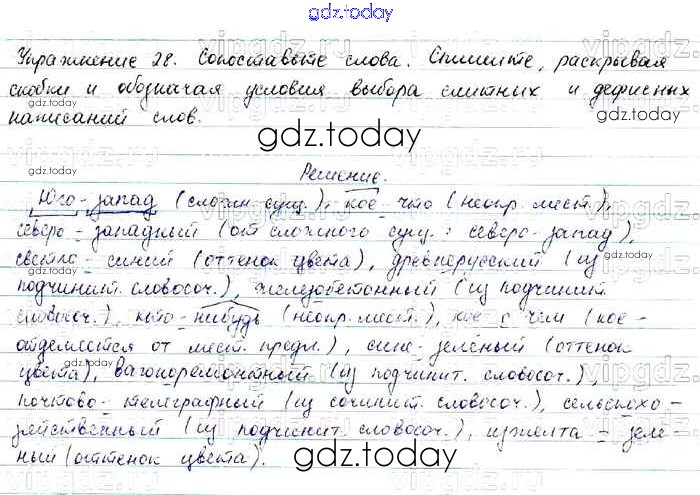 gdz.today
Упражнение 28. Сопоставьте слова. Спишите, раскрывая
скобки и обозначая условия выбора слитных и дефисных
gdz.today
написаний слов.
gdz.today
Решение.
Юго-запад (сложн. сущ.), кое-что (неопр. мест.),
северо-западный (от сложного сущ.: северо-запад),
светло-синий (оттенок цвета), древнерусский (из
подчинит. словосоч.), железобетонный (из подчинит.
словосоч.), кто-нибудь (неопр. мест.), кое с чем (кое-
отделяется от мест. предл.), сине-зелёный (оттенок
gdz.today
цвета), вагоноремонтный (из подчинит. словосоч.),
почтово-телеграфный (из сочинит. словосоч.), сельскохо-
зяйственный (из подчинит. словосоч.), изжелта-зеле-
ный (оттенок цвета).
gdz.today